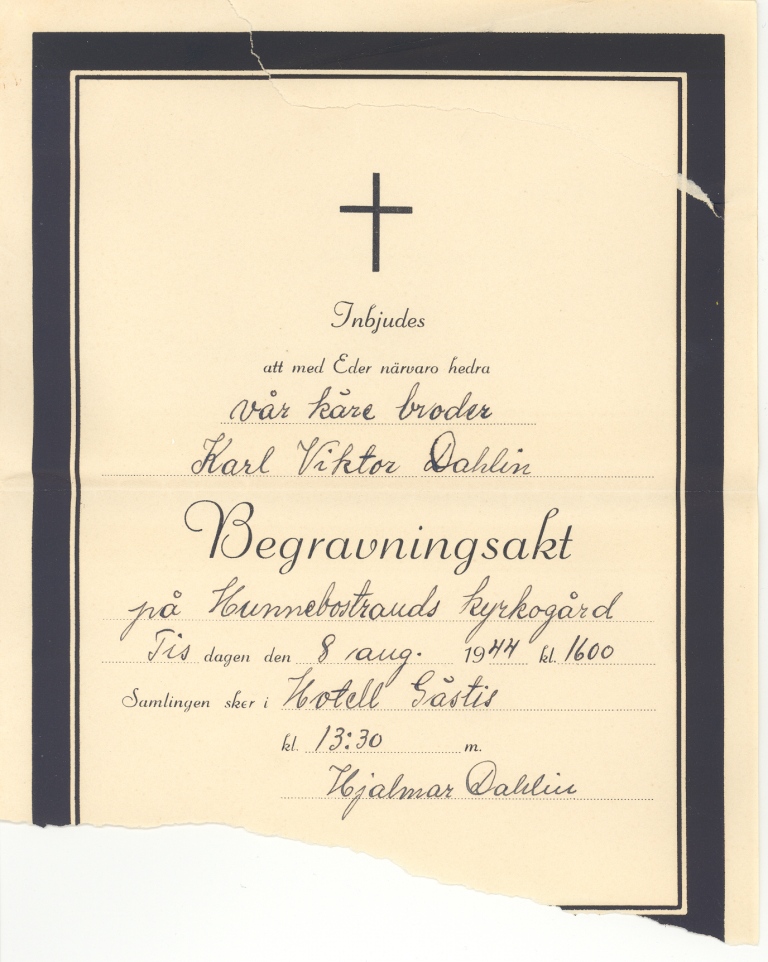 Inbjudes
att med Eder närvaro hedra
vår käre broder
Karl Viktor Dahlin
Begravningsakt
på Hunnebostrands kyrkogård
Tisdagen den 8 aug. 1944 kl. 1600
Samlingen sker i Hotell Gästis
kl. 13:30 m.
Hjalmar Dahlin